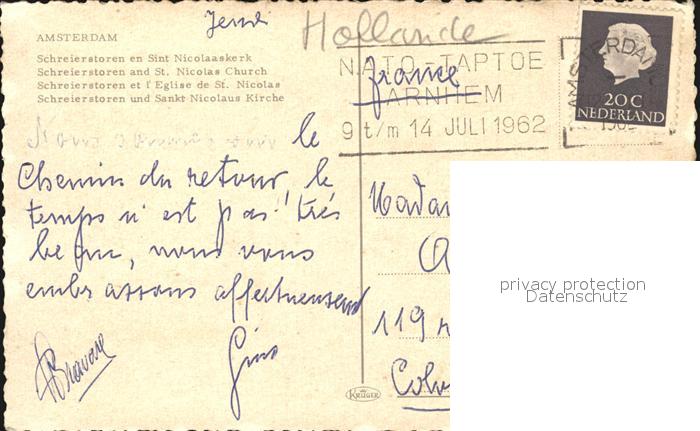 Hollande
AMSTERDAM
Schreierstoren en Sint Nicolaaskerk
Schreierstoren and St. Nicolas Church
Schreierstoren et l'Eglise de St. Nicolas
Schreierstoren und Sankt Nicolaus Kirche
NATO-TAPTOE
france
ARNHEM
9 t/m 14 JULI 1962
AMSTERDAM
20C
NEDERLAND
Nous sommes sur le
chemin du retour, le
temps n'est pas très
beau, nous vous
embrassons affectueusement
Gino
Madam
119
KRÜGER
privacy protection
Datenschutz